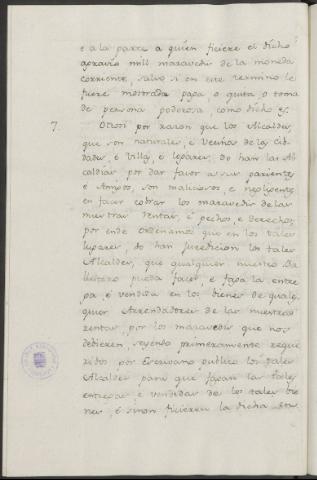 e a la parte a quien ficiere el dicho
agravio mill maravedis de la moneda
corriente, salvo si en este termino le
fuere mostrada paga, o quita, o toma
de persona poderosa, como dicho es.
7. Otrosi por razon que los Alcaldes,
que son naturales, é vecinos de las Cib-
dades, é Villas, é lugares, do han las Al-
caldias por dar favor a sus parientes,
é Amigos, son maliciosos, e negligentes
en facer cobrar los maravedis de las
nuestras rentas, é pechos, e derechos,
por ende ordenamos que en los tales
lugares, do han juredicion los tales
Alcaldes, que qualquier nuestro Ba-
llestero pueda facer, e faga la entre
ga, é vendida en los bienes de qual-
quier Arrendadores de las nuestras
rentas, por los maravedis que nos
debieren, seyendo primeramente reque
ridos por Escrivano publico los tales
Alcaldes para que fagan las tales
entregas e vendidas de los tales bie
nes, é si non ficieren la dicha en-